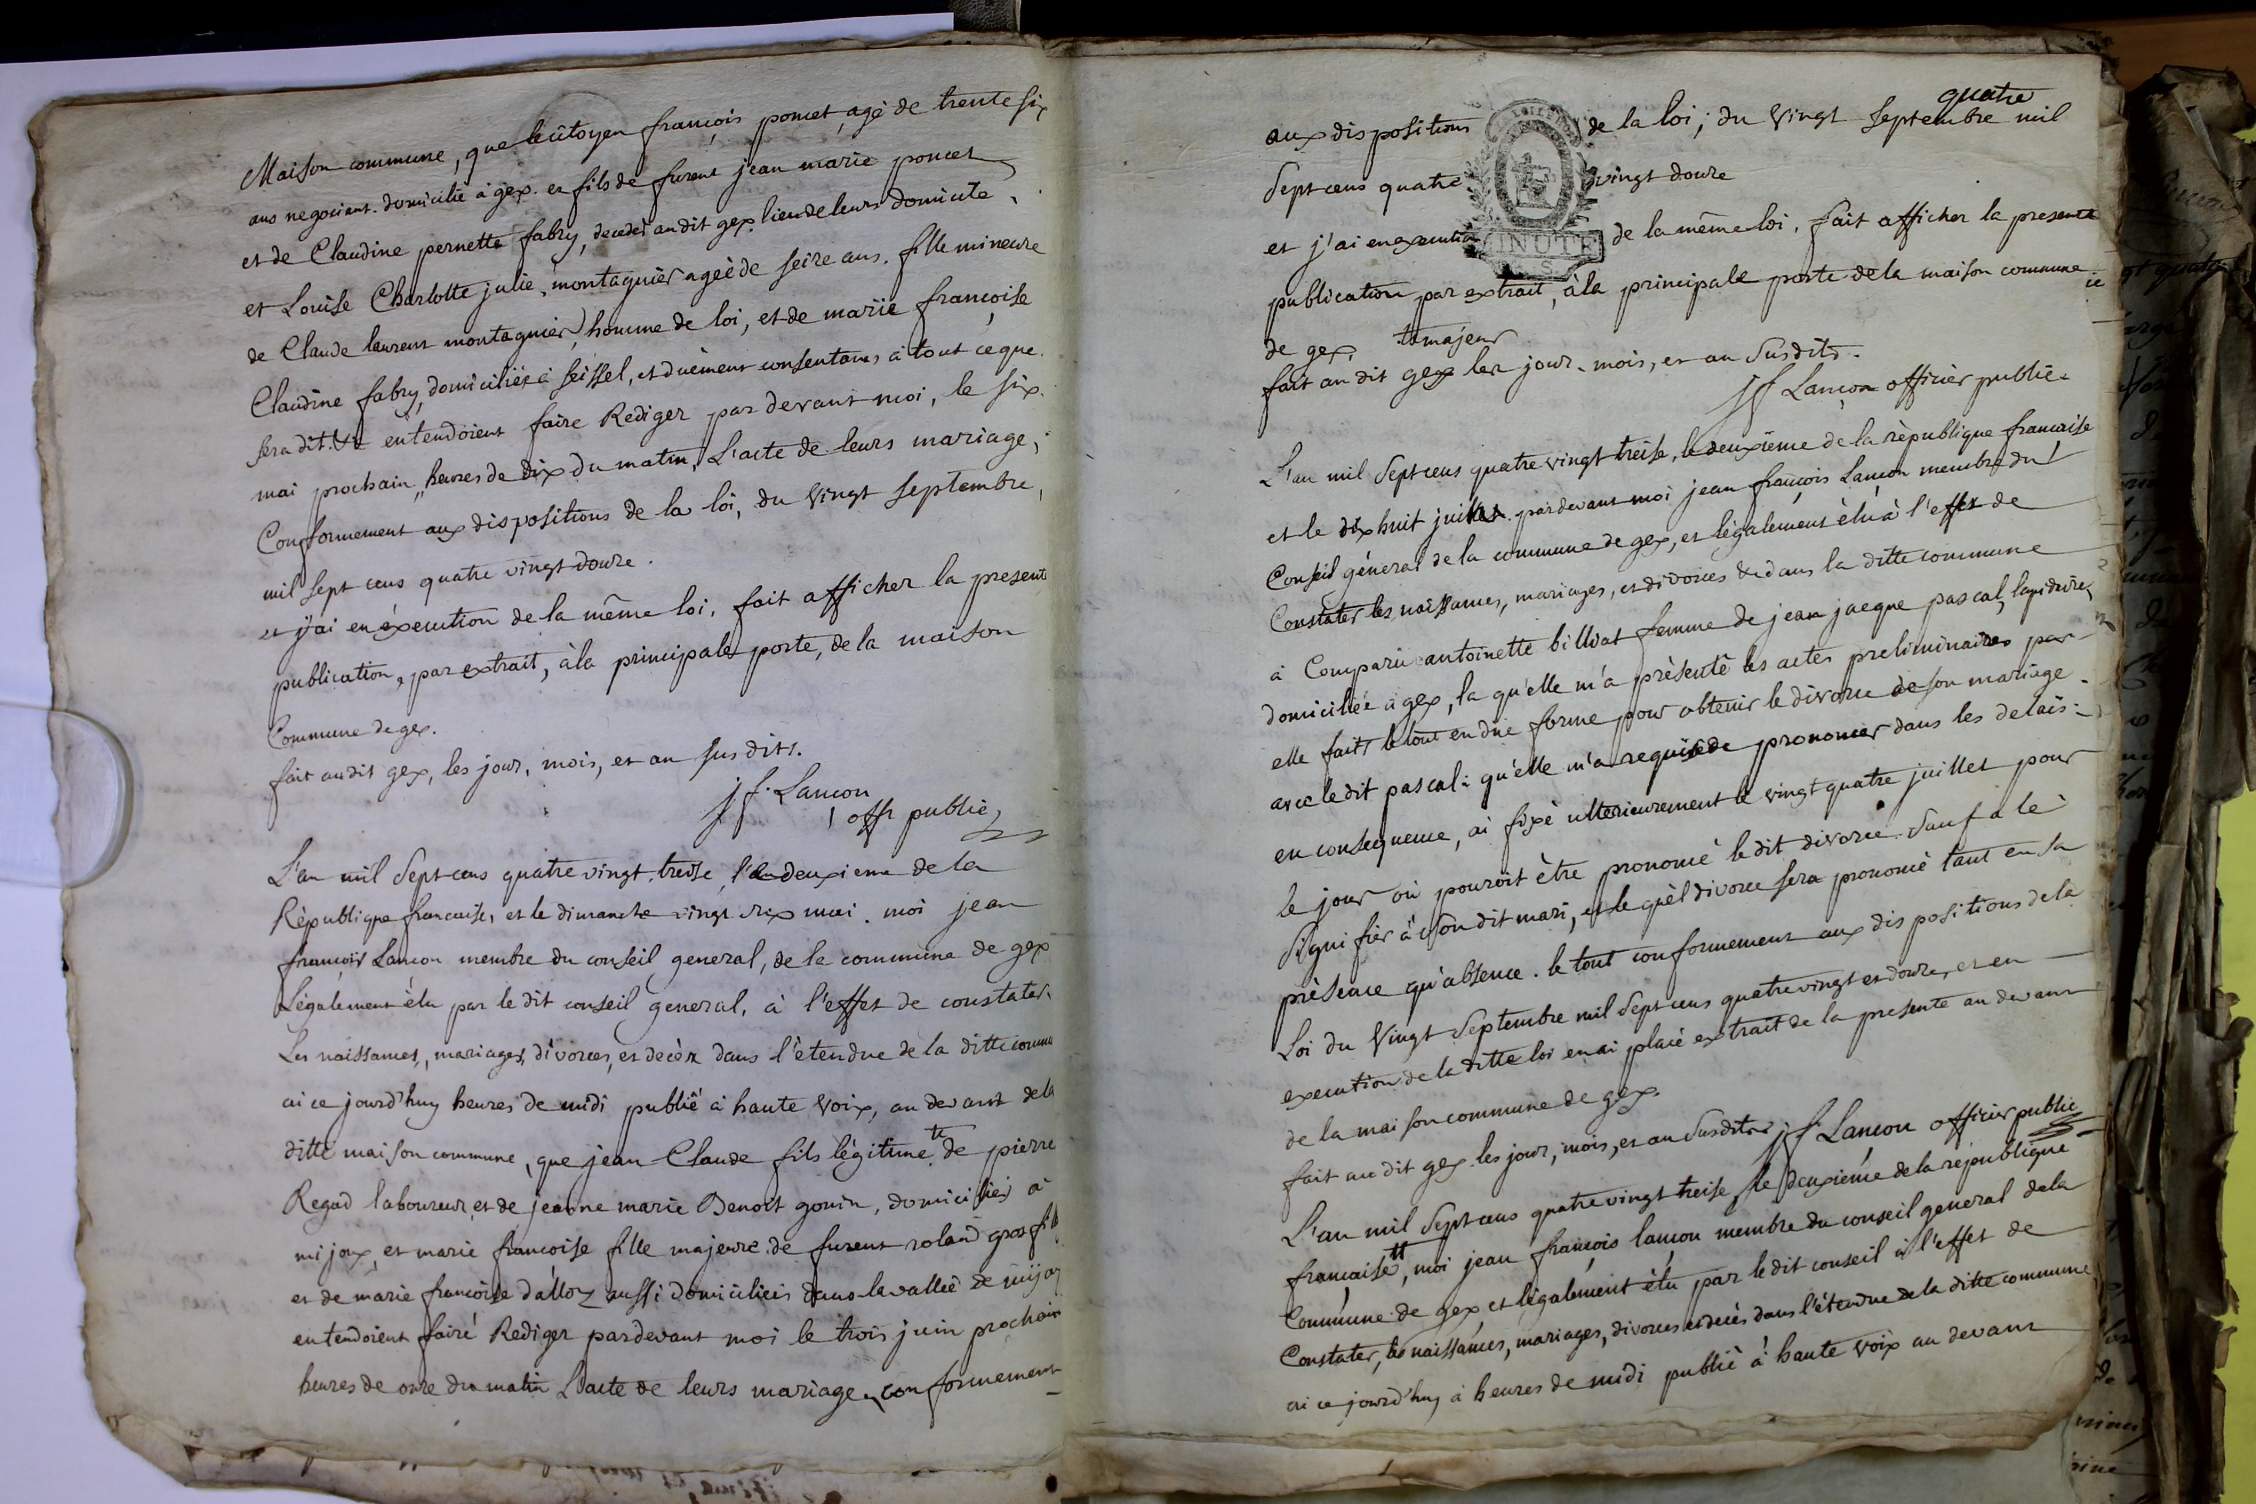 Maison commune, que le citoyen françois poncet, agé de trente six
ans negociant. domicilié à gex. et fils de furent jean marie poncet
et de Claudine pernette fabry, decedés audit gex, lieu de leurs domicile,
et Louise Charlotte julie, montagnier ageé de seize ans. fille mineure
de Claude laurent montagnier, homme de loi, et de marie françoise
Claudine fabry, domiciliés à seissel, et duèment consentants à tout ce que
sera dit. entendoient faire Rediger par devant moi, le six
mai prochain, heures de dix du matin, L'acte de leurs mariage,
Conformement aux dispositions de la loi, du Vingt septembre,
mil sept cens quatre vingt douze.
et j'ai en éxecution de la même loi, fait afficher la presente
publication, par extrait, à la principale porte, de la maison
Commune de gex.
fait audit gex, les jour, mois, et an susdits.
jf. Lançon
offr public
L'an mil Sept cens quatre vingt treise, l'an deuxieme de la
République francaise, et le dimanche vingt six mai. moi jean
françois Lançon membre du conseil general, de la commune de gex
Légalement élu par le dit conseil general, à l'effet de constater,
Les naissances, mariages, divorces, et decès dans l'ètendue de la ditte commu
ai ce jourd'huy heures de midi publié à haute Voix, au devant de la
ditte maison commune, que jean Claude fils légitime de pierre
Regad laboureur, et de jeanne marie Benoit gonin, domiciliés à
mijoux, et marie francoise fille majeure de furent roland grosfill
et de marie françoise dalloz aussi domiciliés dans la valleé de mijou
entendoient faire Rediger pardevant moi le trois juin prochain
heures de onze du matin L'acte de leurs mariage, conformement
quatre
aux dispositions de la loi; du Vingt Septembre mil
Sept cens quatre vingt douze
et j'ai en execution de la même loi, fait afficher la presente
MINUTE
publication par extrait, à la principale porte de la maison commune
de gex,
fait au dit gex les jour, mois, et an Susdits.
jf Lançon officier public
L'an mil Sept cens quatre vingt treise, le deuxieme de la rèpublique francaise
et le dix huit juillet pardevant moi jean françois Lançon membre du
Conseil géneral de la commune de gex, et légalement élu à l'effet de
Constater les naissances, mariages, et divorces dans la ditte commune
à Comparu antoinette billiat femme de jean jacque pascal, lapidaire,
domiciliée à gex, la qu'elle m'a présenté les actes preliminaires par
elle faits le tout en duë forme pour obtenir le divorce de son mariage
avec le dit pascal: qu'elle m'a requis de prononcer dans les delais:
en consequence, ai fixé ulterieurement le vingt quatre juillet pour
le jour où pouroit être prononcé le dit divorce. Sauf a le
Signifier à Son dit mari, et le quèl divorce sera prononcé tant en sa
prèsence qu'absence. le tout conformement aux dispositions de la
Loi du Vingt Septembre mil Sept cens quatre vingt et douze, et en
execution de la ditte loi en ai placé extrait de la presente au devant
de la maison commune de gex.
fait au dit gex les jour, mois, et an Susdits jf Lançon officier public
L'an mil Sept cens quatre vingt treise, le deuxiéme de la république
francaise, moi jean françois lançon membre du conseil general de la
Commune de gex, et légalement élu par le dit conseil à l'effet de
Constater, les naissances, mariages, divorces et decés dans l'étendue de la ditte commune,
ai ce jourd'huy à heures de midi publié à haute voix au devant